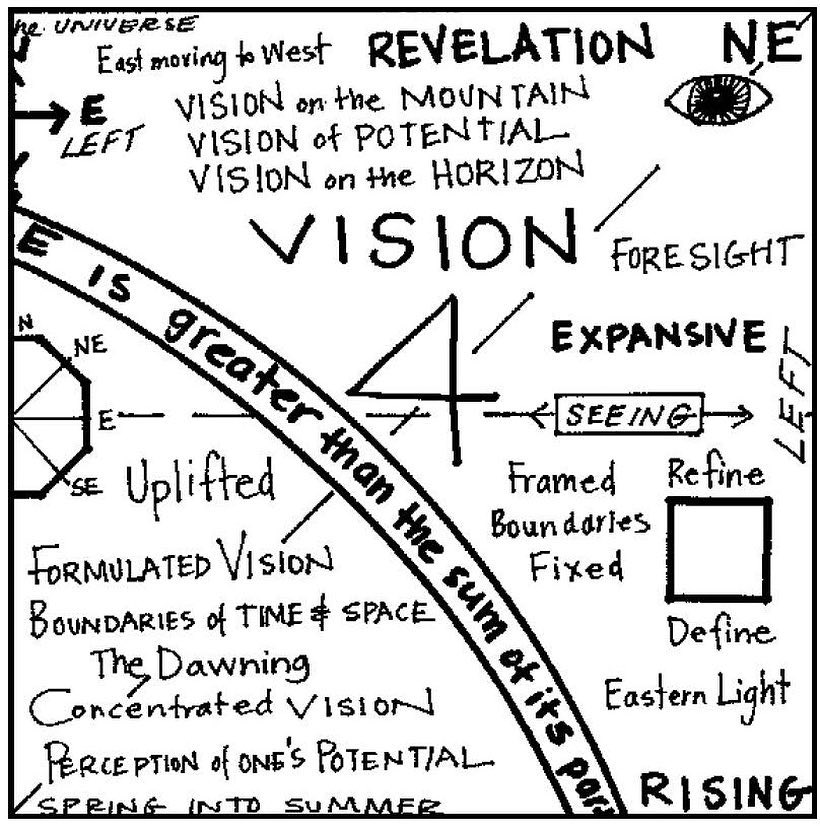 he UNIVERSE
East moving to West
REVELATION
NE
E
LEFT
VISION on the MOUNTAIN
VISION of POTENTIAL
VISION on the HORIZON
VISION
FORESIGHT
E is greater than the sum of its par
4
EXPANSIVE
LEFT
SEEING
N
NE
E
SE
Uplifted
Framed
Boundaries
Fixed
Refine
Define
FORMULATED VISION
BOUNDARIES of TIME & SPACE
The Dawning
Concentrated VISION
PERCEPTION of ONE'S POTENTIAL
SPRING INTO SUMMER
Eastern Light
RISING